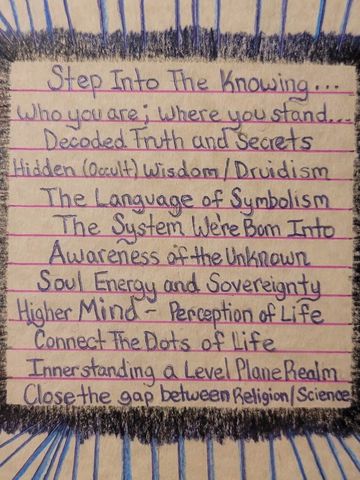 Step Into The Knowing...
who you are; where you stand...
Decoded Truth and Secrets
Hidden (Occult) Wisdom/Druidism
The Language of Symbolism
The System We're Born Into
Awareness of the Unknown
Soul Energy and Sovereignty
Higher Mind - Perception of Life
Connect The Dots of Life
Innerstanding a Level Plane Realm
Close the gap between Religion/Science